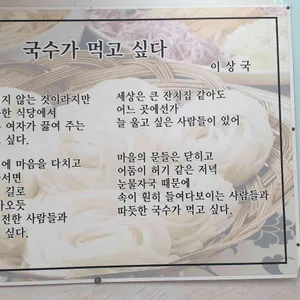 국수가 먹고 싶다
이 상 국
지 않는 것이라지만
한 식당에서
여자가 끓여 주는
싶다.
에 마음을 다치고
서면
길로
아오듯
전한 사람들과
싶다.
세상은 큰 잔칫집 같아도
어느 곳에선가
늘 울고 싶은 사람들이 있어
마을의 문들은 닫히고
어둠이 허기 같은 저녁
눈물자국 때문에
속이 훤히 들여다보이는 사람들과
따뜻한 국수가 먹고 싶다.